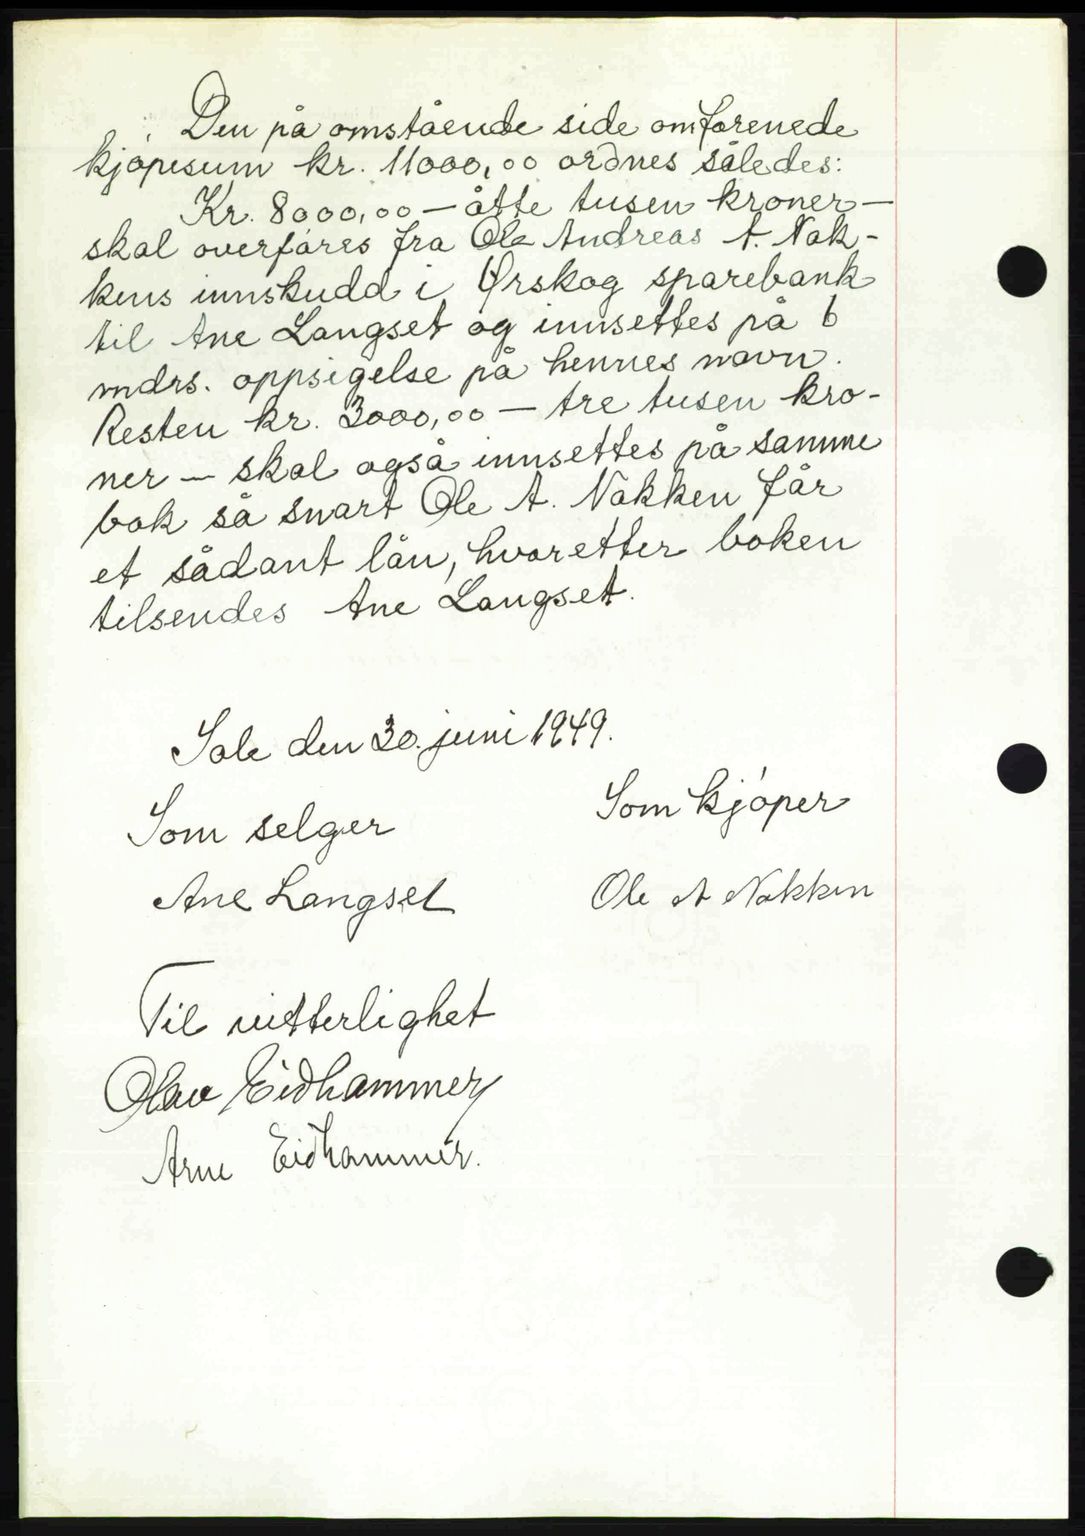 Den på omstående side omforenede
kjøpesum kr. 11000,00 ordnes således:
Kr. 8000,00 — åtte tusen kroner —
skal overføres fra Ole Andreas A. Nak-
kens innskudd i Ørskog sparebank
til Ane Langset og innsettes på 6
mdrs. oppsigelse på hennes navn.
Resten kr. 3000,00 — tre tusen kro-
ner — skal også innsettes på samme
bok så snart Ole A. Nakken får
et sådant lån, hvoretter boken
tilsendes Ane Langset.
den 30. juni 1949.
Som selger
Som kjøper
Ane Langset
Ole A Nakken
Til vitterlighet
Olav Eidhammer
Arne Eidhammer.